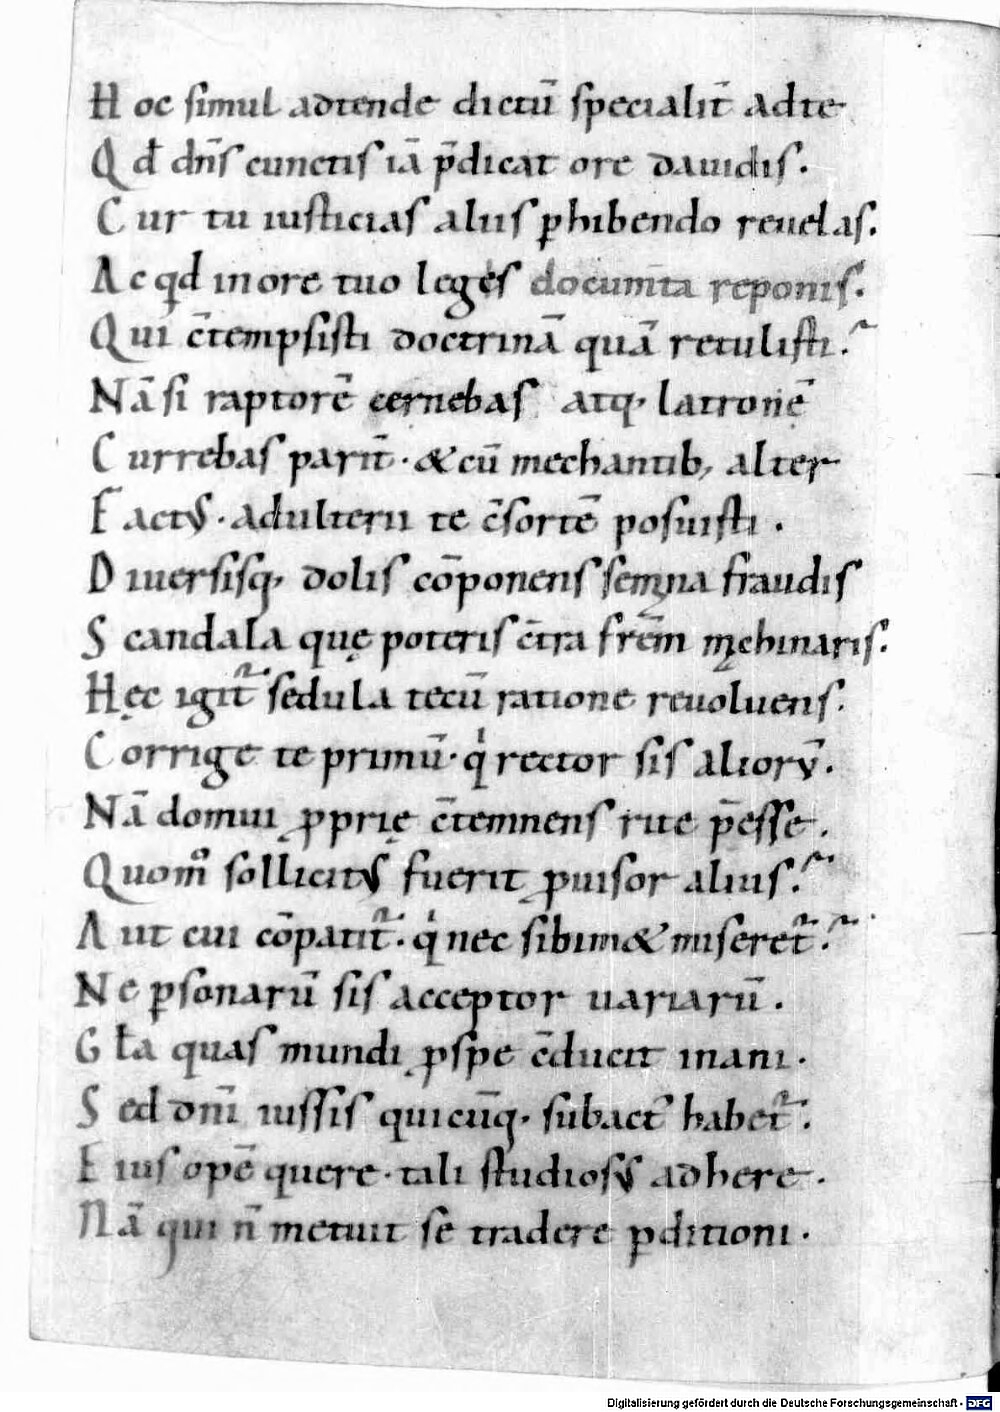 Hoc simul adtende dictū specialit̄ ad te
Qđ dn̄s cunctis iā p̄dicat ore dauidis.
Cur tu iusticias aliis ꝑhibendo reuelas.
Ac qđ in ore tuo leges docum̄ta reponis.
Qui c̄tempsisti doctrinā quā retulisti.
Nā si raptorē cernebas atq· latronē
Currebas parit̄· & cū mechantib; alter
Factus· adulterii te c̄sortē posuisti.
Diuersisq· dolis cōponens semina fraudis
Scandala quę poteris c̄tra frēm męchinaris.
Hęc igit̄ sedula tecū ratione reuoluens.
Corrige te primū· qͥ rector sis aliorū.
Nā domui ꝓprię c̄temnens rite p̄esse.
Quom̊ sollicitus fuerit ꝓuisor alius.
Aut cui cōpatit̄· qͥ nec sibim& miseret̄.
Ne ꝑsonarū sis acceptor uariarū.
Gła quas mundi ꝓspe c̄ducit inani.
Sed dn̄i iussis quicūq· subact̄ habet̄.
Eius opē quere· tali studiosus adhere.
Nā qui n̄ metuit se tradere ꝑditioni.
Digitalisierung gefördert durch die Deutsche Forschungsgemeinschaft - DFG